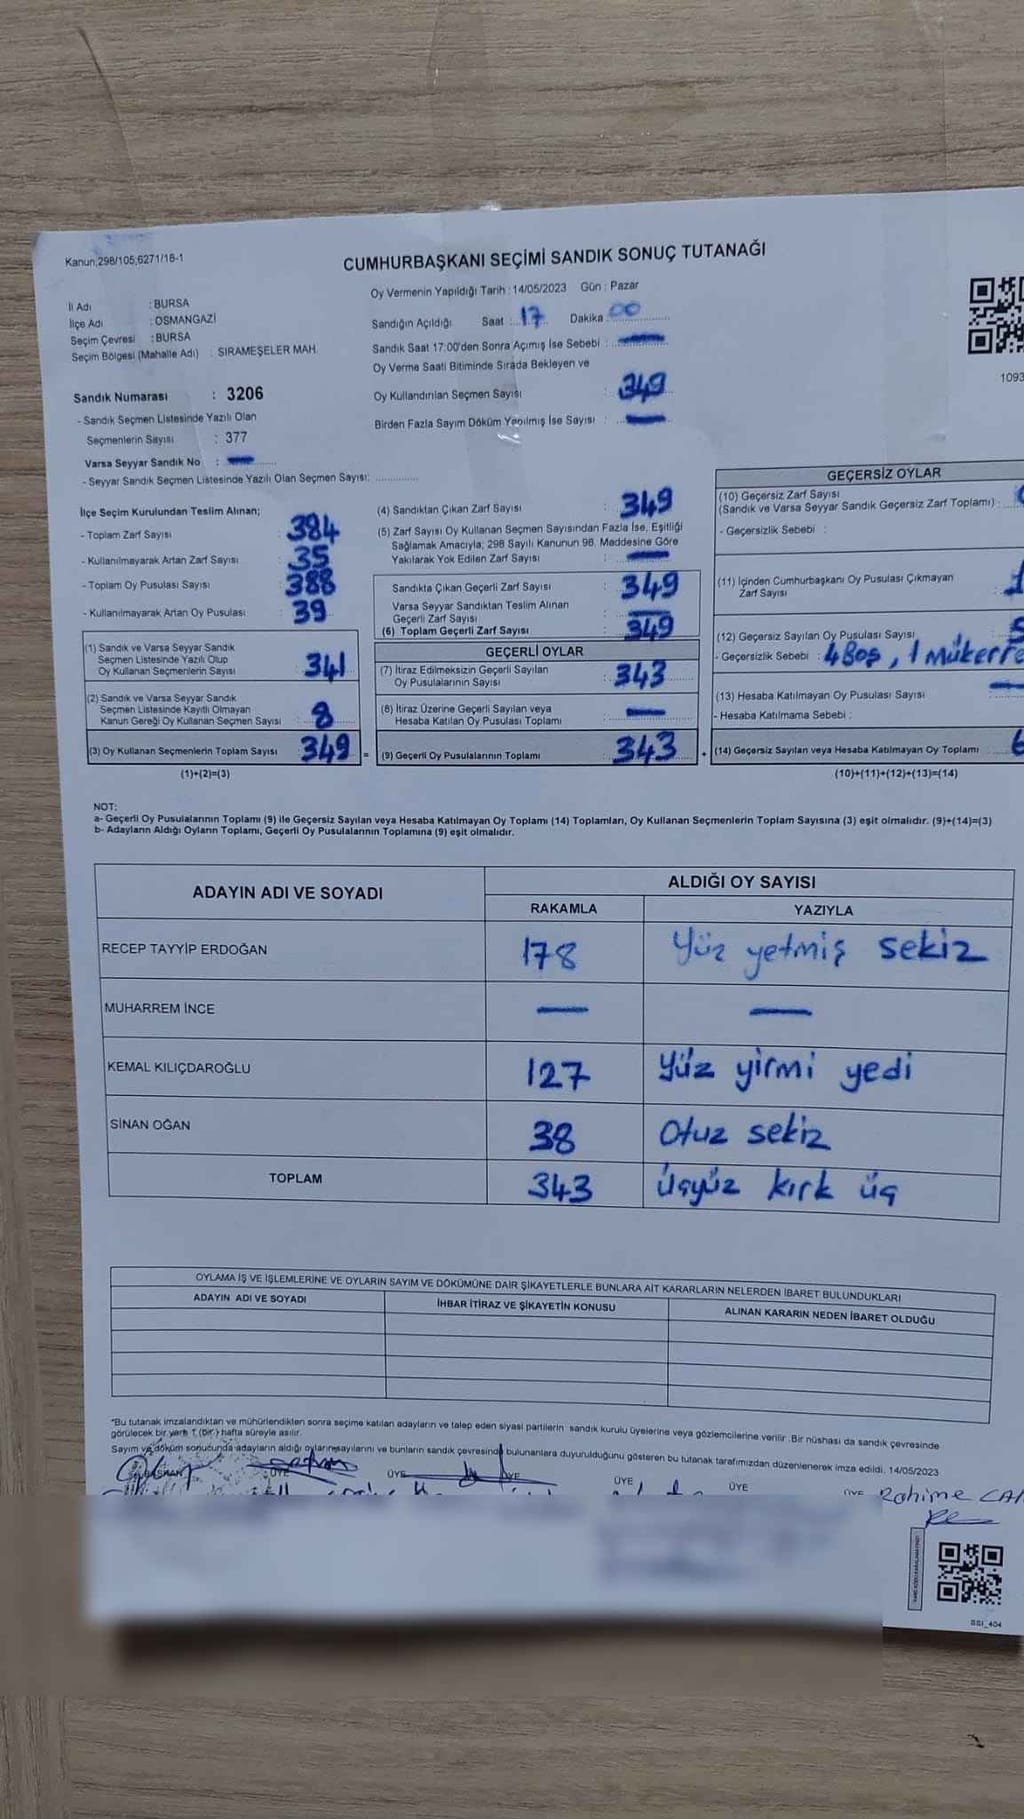 Kanun;298/105;6271/18-1
CUMHURBAŞKANI SEÇİMİ SANDIK SONUÇ TUTANAĞI
İl Adı : BURSA
İlçe Adı : OSMANGAZİ
Seçim Çevresi : BURSA
Seçim Bölgesi (Mahalle Adı) : SIRAMEŞELER MAH.
Oy Vermenin Yapıldığı Tarih : 14/05/2023 Gün : Pazar
Sandığın Açıldığı Saat : 17 Dakika : 00
Sandık Saat 17:00'den Sonra Açımış İse Sebebi : —
Oy Verme Saati Bitiminde Sırada Bekleyen ve
Oy Kullandırılan Seçmen Sayısı : 349
Birden Fazla Sayım Döküm Yapılmış İse Sayısı : —
1093
Sandık Numarası : 3206
- Sandık Seçmen Listesinde Yazılı Olan
Seçmenlerin Sayısı : 377
Varsa Seyyar Sandık No : —
- Seyyar Sandık Seçmen Listesinde Yazılı Olan Seçmen Sayısı:
İlçe Seçim Kurulundan Teslim Alınan;
- Toplam Zarf Sayısı : 384
- Kullanılmayarak Artan Zarf Sayısı : 35
- Toplam Oy Pusulası Sayısı : 388
- Kullanılmayarak Artan Oy Pusulası : 39
(1) Sandık ve Varsa Seyyar Sandık
Seçmen Listesinde Yazılı Olup
Oy Kullanan Seçmenlerin Sayısı : 341
(2) Sandık ve Varsa Seyyar Sandık
Seçmen Listesinde Kayıtlı Olmayan
Kanun Gereği Oy Kullanan Seçmen Sayısı : 8
(3) Oy Kullanan Seçmenlerin Toplam Sayısı : 349 =
(1)+(2)=(3)
(4) Sandıktan Çıkan Zarf Sayısı : 349
(5) Zarf Sayısı Oy Kullanan Seçmen Sayısından Fazla İse, Eşitliği
Sağlamak Amacıyla; 298 Sayılı Kanunun 98. Maddesine Göre
Yakılarak Yok Edilen Zarf Sayısı : —
Sandıkta Çıkan Geçerli Zarf Sayısı : 349
Varsa Seyyar Sandıktan Teslim Alınan
Geçerli Zarf Sayısı : —
(6) Toplam Geçerli Zarf Sayısı : 349
GEÇERLİ OYLAR
(7) İtiraz Edilmeksizin Geçerli Sayılan
Oy Pusulalarının Sayısı : 343
(8) İtiraz Üzerine Geçerli Sayılan veya
Hesaba Katılan Oy Pusulası Toplamı : —
(9) Geçerli Oy Pusulalarının Toplamı : 343 +
GEÇERSİZ OYLAR
(10) Geçersiz Zarf Sayısı
(Sandık ve Varsa Seyyar Sandık Geçersiz Zarf Toplamı) :
- Geçersizlik Sebebi :
(11) İçinden Cumhurbaşkanı Oy Pusulası Çıkmayan
Zarf Sayısı : 1
(12) Geçersiz Sayılan Oy Pusulası Sayısı : 5
- Geçersizlik Sebebi : 4 Boş, 1 Mükerre
(13) Hesaba Katılmayan Oy Pusulası Sayısı : —
- Hesaba Katılmama Sebebi :
(14) Geçersiz Sayılan veya Hesaba Katılmayan Oy Toplamı : 6
(10)+(11)+(12)+(13)=(14)
NOT:
a- Geçerli Oy Pusulalarının Toplamı (9) ile Geçersiz Sayılan veya Hesaba Katılmayan Oy Toplamı (14) Toplamları, Oy Kullanan Seçmenlerin Toplam Sayısına (3) eşit olmalıdır. (9)+(14)=(3)
b- Adayların Aldığı Oyların Toplamı, Geçerli Oy Pusulalarının Toplamına (9) eşit olmalıdır.
ADAYIN ADI VE SOYADI ALDIĞI OY SAYISI
RAKAMLA YAZIYLA
RECEP TAYYİP ERDOĞAN 178 Yüz yetmiş sekiz
MUHARREM İNCE — —
KEMAL KILIÇDAROĞLU 127 Yüz yirmi yedi
SİNAN OĞAN 38 Otuz sekiz
TOPLAM 343 üçyüz kırk üç
OYLAMA İŞ VE İŞLEMLERİNE VE OYLARIN SAYIM VE DÖKÜMÜNE DAİR ŞİKAYETLERLE BUNLARA AİT KARARLARIN NELERDEN İBARET BULUNDUKLARI
ADAYIN ADI VE SOYADI İHBAR İTİRAZ VE ŞİKAYETİN KONUSU ALINAN KARARIN NEDEN İBARET OLDUĞU
*Bu tutanak imzalandıktan ve mühürlendikten sonra seçime katılan adayların ve talep eden siyasi partilerin sandık kurulu üyelerine veya gözlemcilerine verilir. Bir nüshası da sandık çevresinde
görülecek bir yere 1 (bir) hafta süreyle asılır.
Sayım ve döküm sonucunda adayların aldığı oyların sayılarını ve bunların sandık çevresinde bulunanlara duyurulduğunu gösteren bu tutanak tarafımızdan düzenlenerek imza edildi. 14/05/2023
BAŞKAN ÜYE ÜYE ÜYE ÜYE ÜYE ÜYE
Rahime CAN
SSI_404